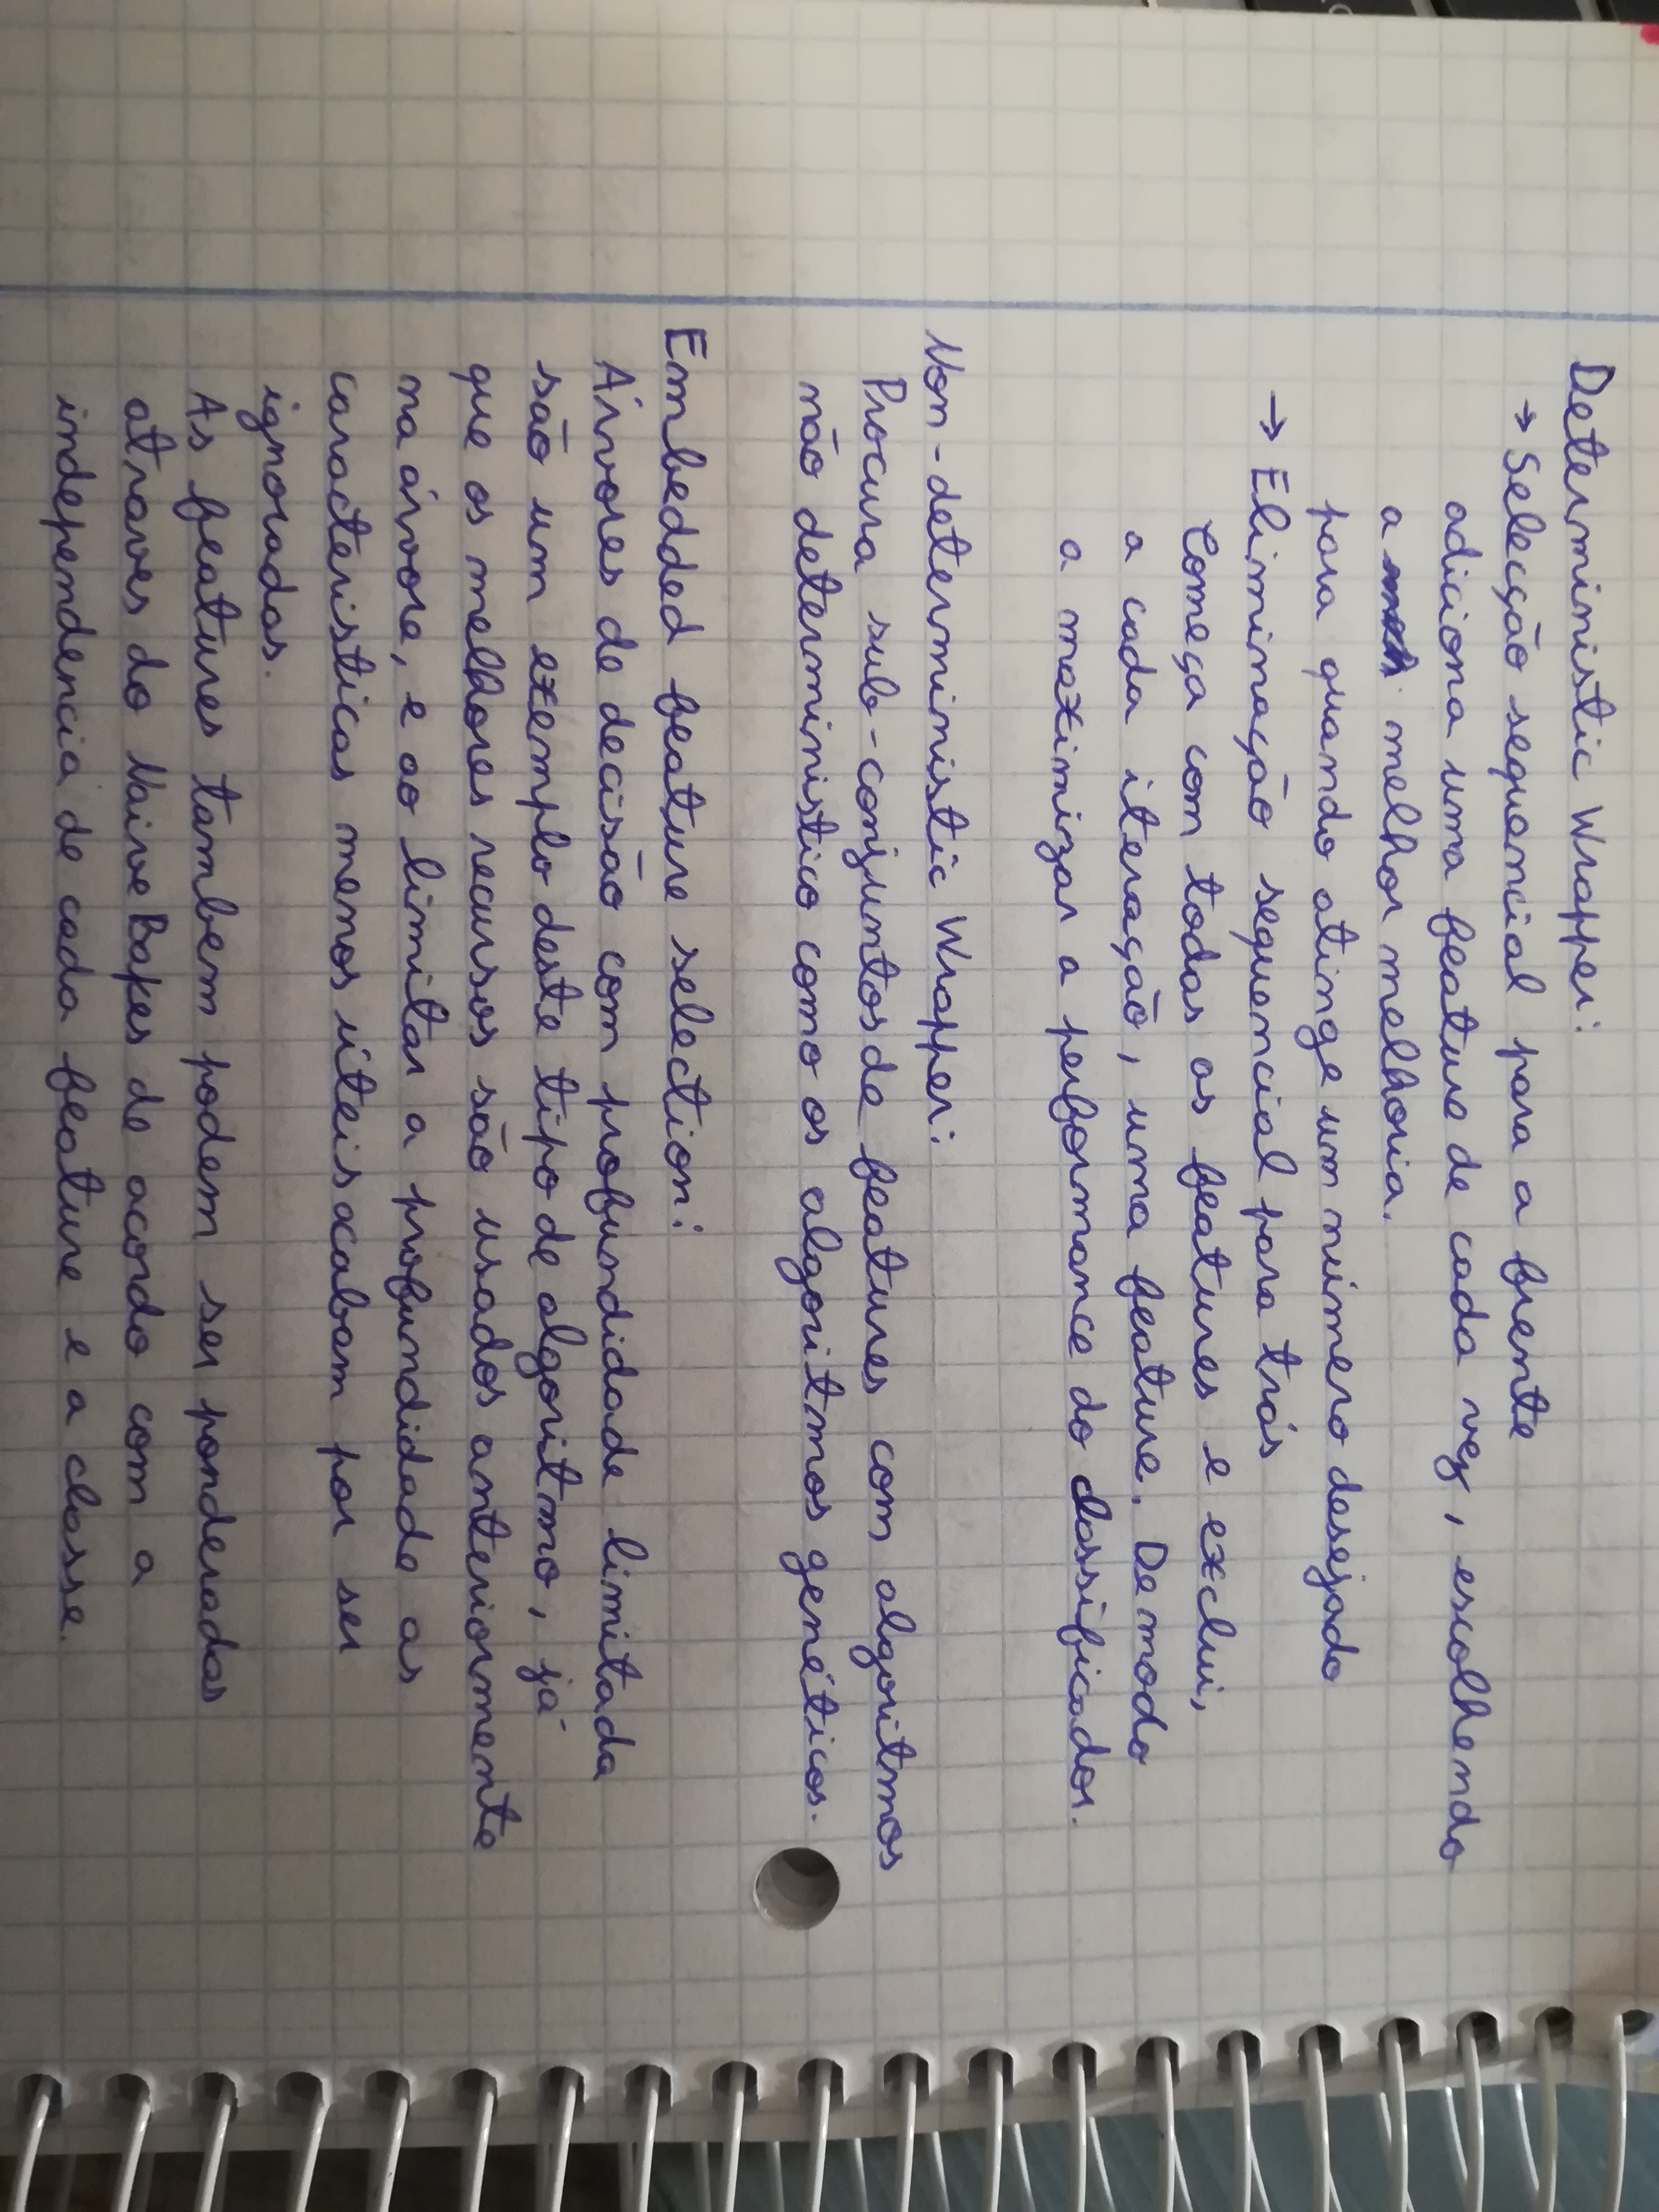 Deterministic Wrapper:
→ Selecção sequencial para a frente
adiciona uma feature de cada vez, escolhendo
a melhor melhoria.
para quando atinge um número desejado
→ Eliminação sequencial para trás
Começa com todas as features e exclui,
a cada iteração, uma feature. De modo
a maximizar a performance do classificador.
Non-deterministic Wrapper:
Procura sub-conjuntos de features com algoritmos
não determinístico como os algoritmos genéticos.
Embedded feature selection:
Árvores de decisão com profundidade limitada
são um exemplo deste tipo de algoritmo, já
que os melhores recursos são usados anteriormente
na árvore, e ao limitar a profundidade as
características menos úteis acabam por ser
ignoradas.
As features tambem podem ser ponderadas
atraves do Naive Bayes de acordo com a
independencia de cada feature e a classe.